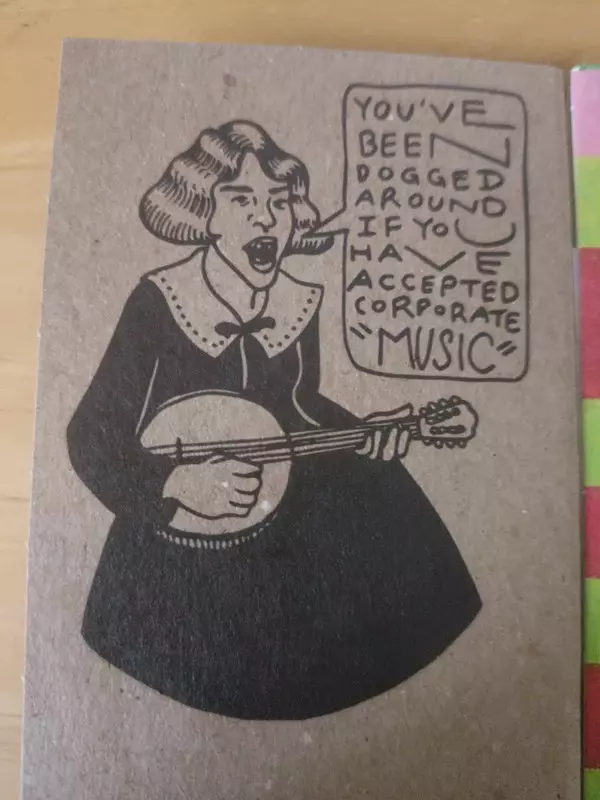 YOU'VE
BEEN
DOGGED
AROUND
IF YOU
HAVE
ACCEPTED
CORPORATE
"MUSIC"